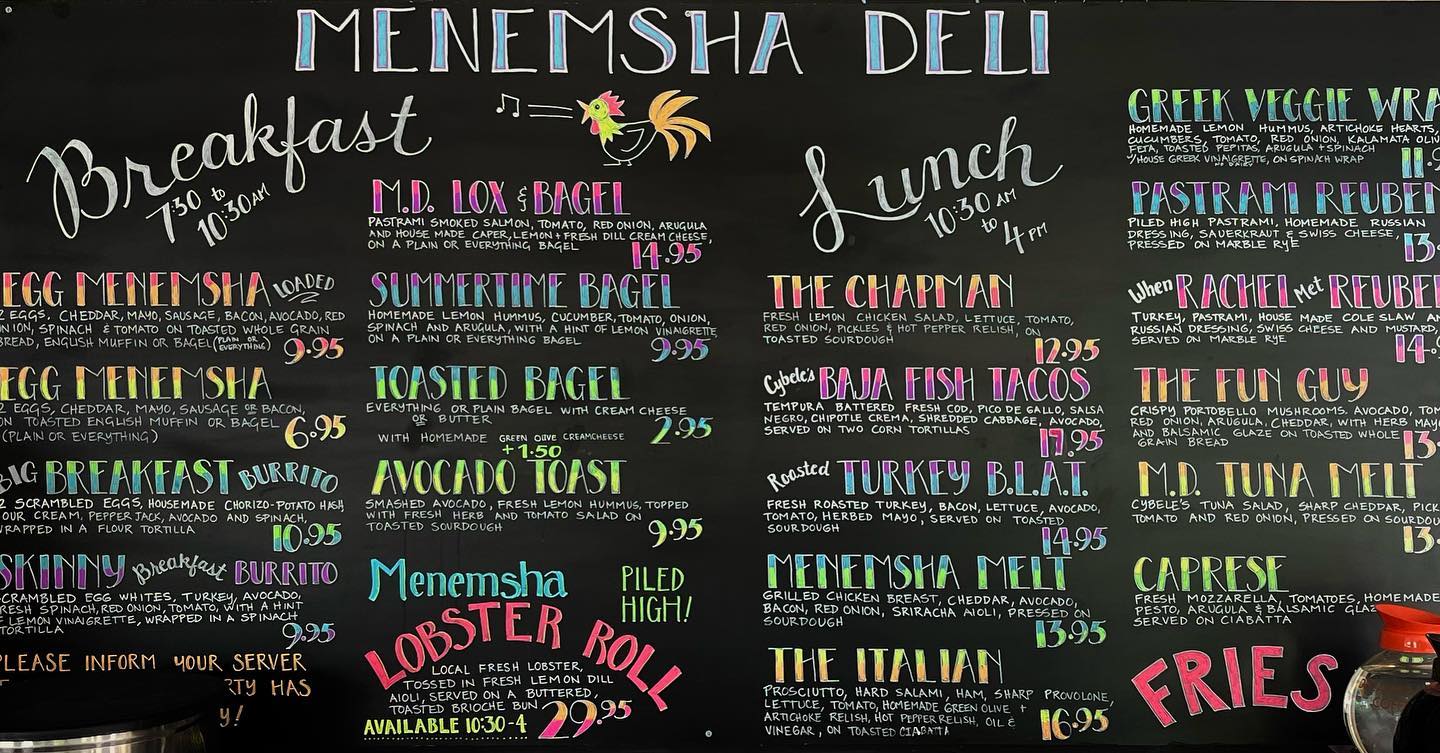 MENEMSHA DELI
Breakfast
7:30 to
10:30AM
EGG MENEMSHA LOADED
2 EGGS, CHEDDAR, MAYO, SAUSAGE, BACON, AVOCADO, RED
ONION, SPINACH & TOMATO ON TOASTED WHOLE GRAIN
BREAD, ENGLISH MUFFIN OR BAGEL (PLAIN OR EVERYTHING) 9.95
EGG MENEMSHA
2 EGGS, CHEDDAR, MAYO, SAUSAGE OR BACON,
ON TOASTED ENGLISH MUFFIN OR BAGEL
(PLAIN OR EVERYTHING) 6.95
BIG BREAKFAST BURRITO
2 SCRAMBLED EGGS, HOUSEMADE CHORIZO-POTATO HASH,
SOUR CREAM, PEPPER JACK, AVOCADO AND SPINACH,
WRAPPED IN A FLOUR TORTILLA 10.95
SKINNY Breakfast BURRITO
SCRAMBLED EGG WHITES, TURKEY, AVOCADO,
FRESH SPINACH, RED ONION, TOMATO, WITH A HINT
OF LEMON VINAIGRETTE, WRAPPED IN A SPINACH
TORTILLA 9.95
PLEASE INFORM YOUR SERVER
RTY HAS
y!
M.D. LOX & BAGEL
PASTRAMI SMOKED SALMON, TOMATO, RED ONION, ARUGULA
AND HOUSE MADE CAPER, LEMON + FRESH DILL CREAM CHEESE,
ON A PLAIN OR EVERYTHING BAGEL 14.95
SUMMERTIME BAGEL
HOMEMADE LEMON HUMMUS, CUCUMBER, TOMATO, ONION,
SPINACH AND ARUGULA, WITH A HINT OF LEMON VINAIGRETTE
ON A PLAIN OR EVERYTHING BAGEL 9.95
TOASTED BAGEL
EVERYTHING OR PLAIN BAGEL WITH CREAM CHEESE
OR BUTTER 2.95
WITH HOMEMADE GREEN OLIVE CREAMCHEESE
+1.50
AVOCADO TOAST
SMASHED AVOCADO, FRESH LEMON HUMMUS, TOPPED
WITH FRESH HERB AND TOMATO SALAD ON
TOASTED SOURDOUGH 9.95
Menemsha
LOBSTER ROLL
PILED
HIGH!
LOCAL FRESH LOBSTER,
TOSSED IN FRESH LEMON DILL
AIOLI, SERVED ON A BUTTERED,
TOASTED BRIOCHE BUN 29.95
AVAILABLE 10:30-4
Lunch
10:30 AM
to 4 PM
THE CHAPMAN
FRESH LEMON CHICKEN SALAD, LETTUCE, TOMATO,
RED ONION, PICKLES & HOT PEPPER RELISH, ON
TOASTED SOURDOUGH 12.95
Cybele's BAJA FISH TACOS
TEMPURA BATTERED FRESH COD, PICO DE GALLO, SALSA
NEGRO, CHIPOTLE CREMA, SHREDDED CABBAGE, AVOCADO,
SERVED ON TWO CORN TORTILLAS 17.95
Roasted TURKEY B.L.A.T.
FRESH ROASTED TURKEY, BACON, LETTUCE, AVOCADO,
TOMATO, HERBED MAYO, SERVED ON TOASTED
SOURDOUGH 14.95
MENEMSHA MELT
GRILLED CHICKEN BREAST, CHEDDAR, AVOCADO,
BACON, RED ONION, SRIRACHA AIOLI, PRESSED ON
SOURDOUGH 13.95
THE ITALIAN
PROSCIUTTO, HARD SALAMI, HAM, SHARP PROVOLONE,
LETTUCE, TOMATO, HOMEMADE GREEN OLIVE +
ARTICHOKE RELISH, HOT PEPPER RELISH, OIL &
VINEGAR, ON TOASTED CIABATTA 16.95
GREEK VEGGIE WRA
HOMEMADE LEMON HUMMUS, ARTICHOKE HEARTS,
CUCUMBERS, TOMATO, RED ONION, KALAMATA OLIV
FETA, TOASTED PEPITAS, ARUGULA + SPINACH
W/HOUSE GREEK VINAIGRETTE, ON SPINACH WRAP 11.9
PASTRAMI REUBEN
PILED HIGH PASTRAMI, HOMEMADE RUSSIAN
DRESSING, SAUERKRAUT & SWISS CHEESE,
PRESSED ON MARBLE RYE 13.
When RACHEL Met REUBEN
TURKEY, PASTRAMI, HOUSE MADE COLE SLAW AN
RUSSIAN DRESSING, SWISS CHEESE AND MUSTARD,
SERVED ON MARBLE RYE 14.
THE FUN GUY
CRISPY PORTOBELLO MUSHROOMS, AVOCADO, TOM
RED ONION, ARUGULA, CHEDDAR, WITH HERB MAYO
AND BALSAMIC GLAZE ON TOASTED WHOLE
GRAIN BREAD 13.
M.D. TUNA MELT
CYBELE'S TUNA SALAD, SHARP CHEDDAR, PICK
TOMATO AND RED ONION, PRESSED ON SOURDOU
13.
CAPRESE
FRESH MOZZARELLA, TOMATOES, HOMEMADE
PESTO, ARUGULA & BALSAMIC GLAZ
SERVED ON CIABATTA
FRIES